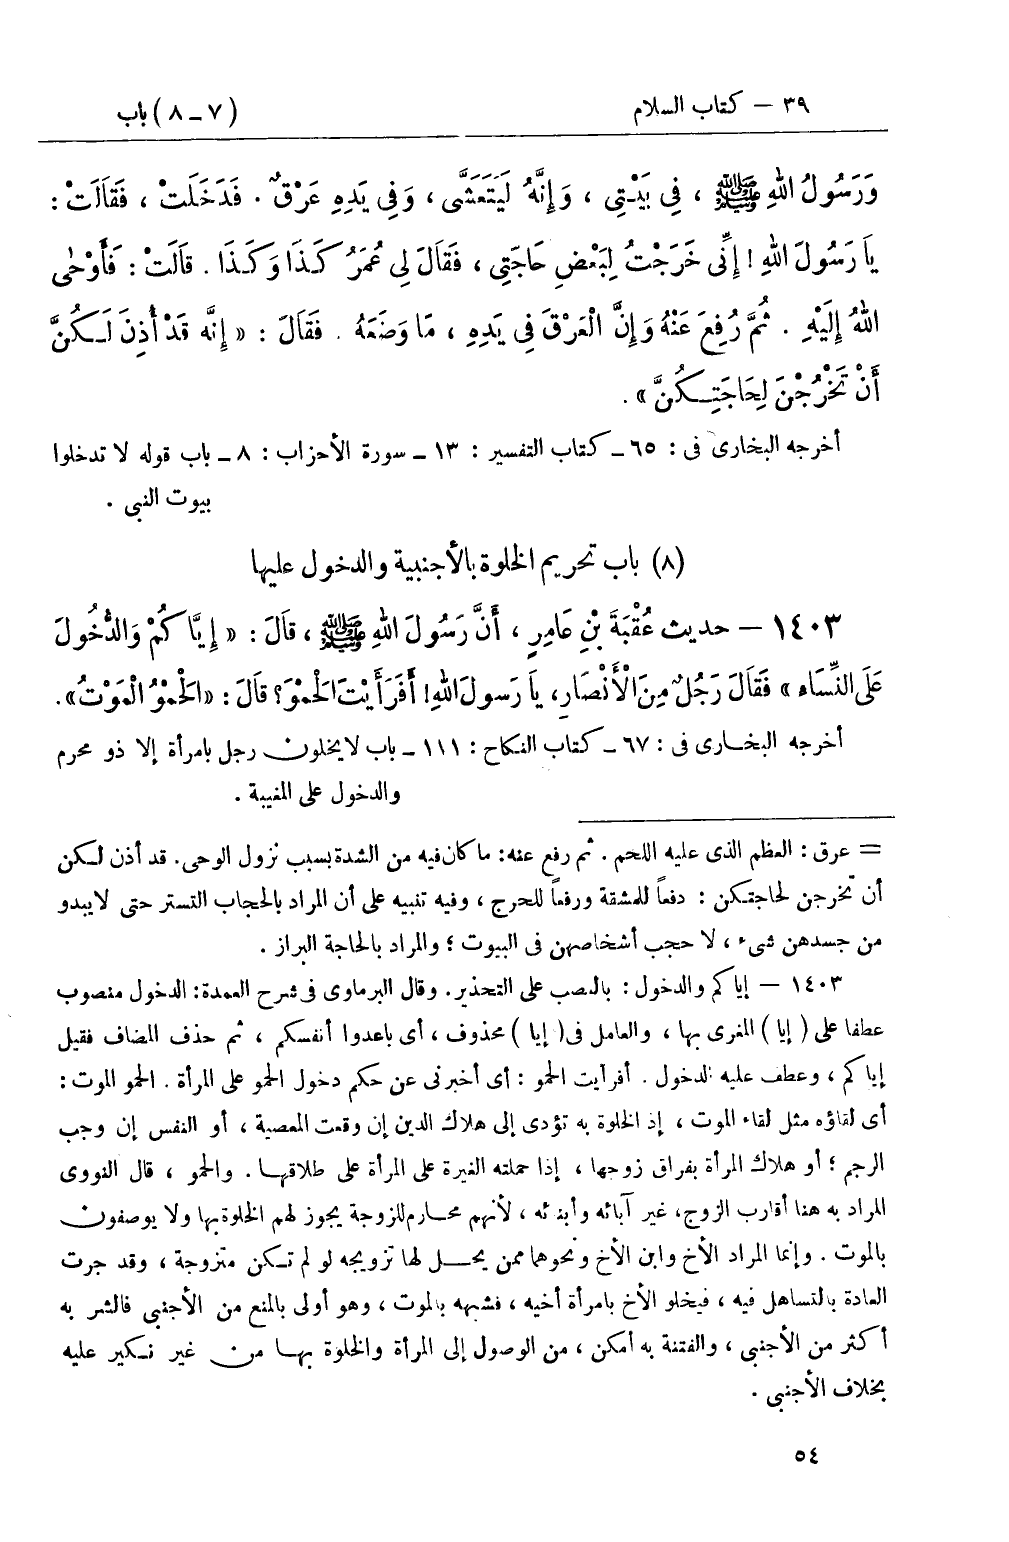 ٣٩ — كتاب السلام (٧ ـ ٨) باب
وَرَسُولُ اللهِ ﷺ ، فِي بَيْتِي ، وَإِنَّهُ لَيَتَعَشَّى ، وَفِي يَدِهِ عَرْقٌ . فَدَخَلَتْ ، فَقَالَتْ :
يَا رَسُولَ اللهِ ! إِنِّي خَرَجْتُ لِبَعْضِ حَاجَتِي ، فَقَالَ لِي عُمَرُ كَذَا وَكَذَا . قَالَتْ : فَأَوْحَى
اللهُ إِلَيْهِ . ثُمَّ رُفِعَ عَنْهُ وَإِنَّ الْعَرْقَ فِي يَدِهِ ، مَا وَضَعَهُ . فَقَالَ : « إِنَّه قَدْ أُذِنَ لَكُنَّ
أَنْ تَخْرُجْنَ لِحَاجَتِكُنَّ » .
أخرجه البخارى فى : ٦٥ ـ كتاب التفسير : ١٣ ـ سورة الأحزاب : ٨ ـ باب قوله لا تدخلوا
بيوت النبى .
(٨) باب تحريم الخلوة بالأجنبية والدخول عليها
١٤٠٣ — حديث عُقْبَةَ بْنِ عَامِرٍ ، أَنَّ رَسُولَ اللهِ ﷺ ، قَالَ : « إِيَّاكُمْ وَالدُّخُولَ
عَلَى النِّسَاءِ » فَقَالَ رَجُلٌ مِنَ الْأَنْصَارِ ، يَا رَسولَ اللهِ ! أَفَرَأَيْتَ الْحَمْوَ ؟ قَالَ : «الْحَمْوُ الْمَوْتُ» .
أخرجه البخارى فى : ٦٧ ـ كتاب النكاح : ١١١ ـ باب لا يخلون رجل بامرأة إلا ذو محرم
والدخول على المغيبة .
= عرق : العظم الذى عليه اللحم . ثم رفع عنه : ما كان فيه من الشدة بسبب نزول الوحى . قد أذن لكن
أن تخرجن لحاجتكن : دفعاً للمشقة ورفعاً للحرج ، وفيه تنبيه على أن المراد بالحجاب التستر حتى لا يبدو
من جسدهن شىء ، لا حجب أشخاصهن فى البيوت ؛ والمراد بالحاجة البراز .
١٤٠٣ — إياكم والدخول : بالنصب على التحذير . وقال البرماوى فى شرح العمدة : الدخول منصوب
عطفا على ( إيا ) المغرى بها ، والعامل فى ( إيا ) محذوف ، أى باعدوا أنفسكم ، ثم حذف المضاف فقيل
إياكم ، وعطف عليه الدخول . أفرأيت الحمو : أى أخبرنى عن حكم دخول الحمو على المرأة . الحمو الموت :
أى لقاؤه مثل لقاء الموت ، إذ الخلوة به تؤدى إلى هلاك الدين إن وقعت المعصية ، أو النفس إن وجب
الرجم ؛ أو هلاك المرأة بفراق زوجها ، إذا حملته الغيرة على المرأة على طلاقها . والحمو ، قال النووى
المراد به هنا أقارب الزوج ، غير آبائه وأبنائه ، لأنهم محارم للزوجة يجوز لهم الخلوة بها ولا يوصفون
بالموت . وإنما المراد الأخ وابن الأخ ونحوهما ممن يحل لها تزويجه لو لم تكن متزوجة ، وقد جرت
العادة بالتساهل فيه ، فيخلو الأخ بامرأة أخيه ، فشبهه بالموت ، وهو أولى بالمنع من الأجنبى فالشر به
أكثر من الأجنبى ، والفتنة به أمكن ، من الوصول إلى المرأة والخلوة بها من غير نكير عليه
بخلاف الأجنبى .
٥٤